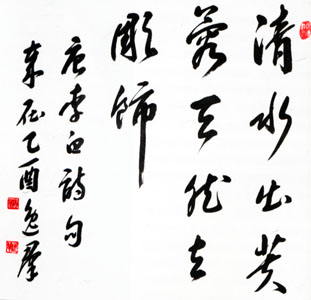 清水出芙
蓉天然去
彫饰
唐李白诗句
岁在乙酉逸群